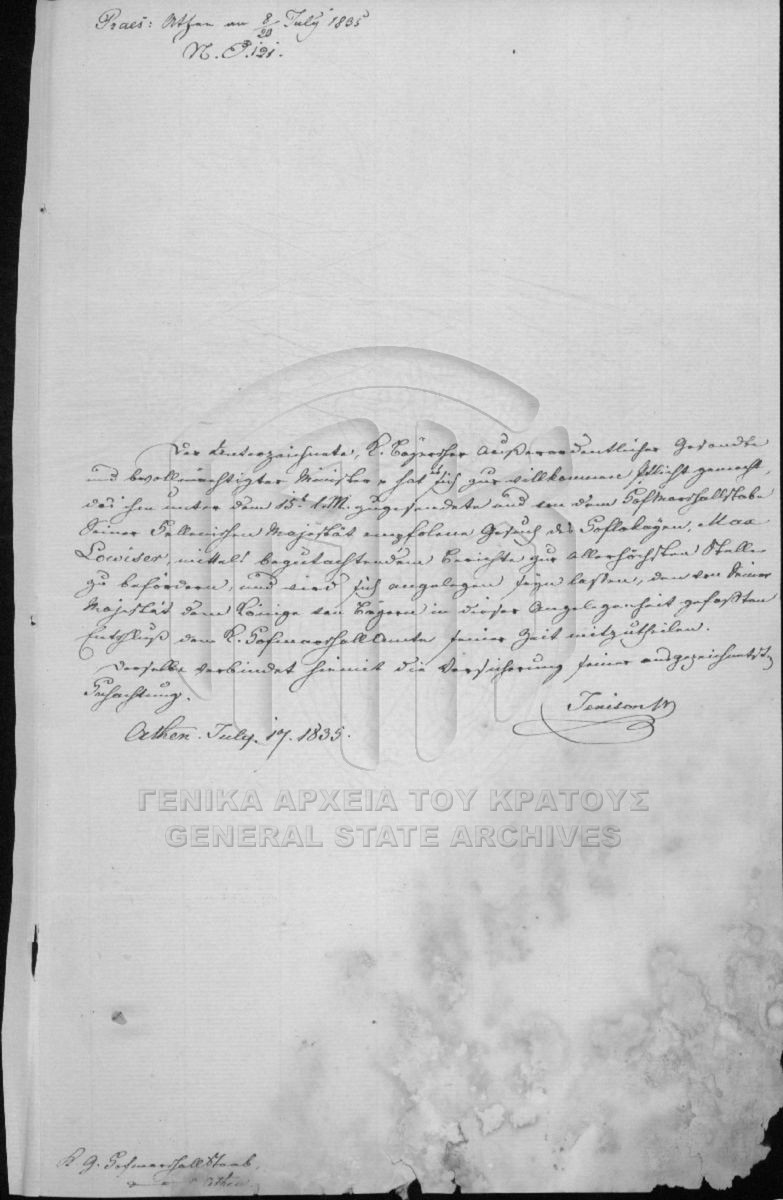 Praes: Athen am 8/20 July 1835
N. P. 121.
Der Unterzeichnete, K. Bayerscher außerordentlicher Gesandte
und bevollmächtigter Minister hat sich zur willkommen Pflicht gemacht,
das ihm unter dem 15t. l. M. zugesendete und von dem Hofmarschallstabe
Seiner Hellenischen Majestät empfolene Gesuch des Hoflakayen, Max
Lowiser, mittels begutachtendem Berichte zur allerhöchsten Stelle
zu befördern, und wird sich angelegen seyn lassen, den von Seiner
Majestät dem Könige von Bayern in dieser Angelegenheit gefaßten
Entschluß dem K. Hofmarschallamte seiner Zeit mitzutheilen.
Derselbe verbindet hiemit die Versicherung seiner ausgezeichnetst
Hochachtung.
Jenison W
Athen. July. 17. 1835.
ΓΕΝΙΚΑ ΑΡΧΕΙΑ ΤΟΥ ΚΡΑΤΟΥΣ
GENERAL STATE ARCHIVES
K. G. Hofmarschallstaab,
Athen